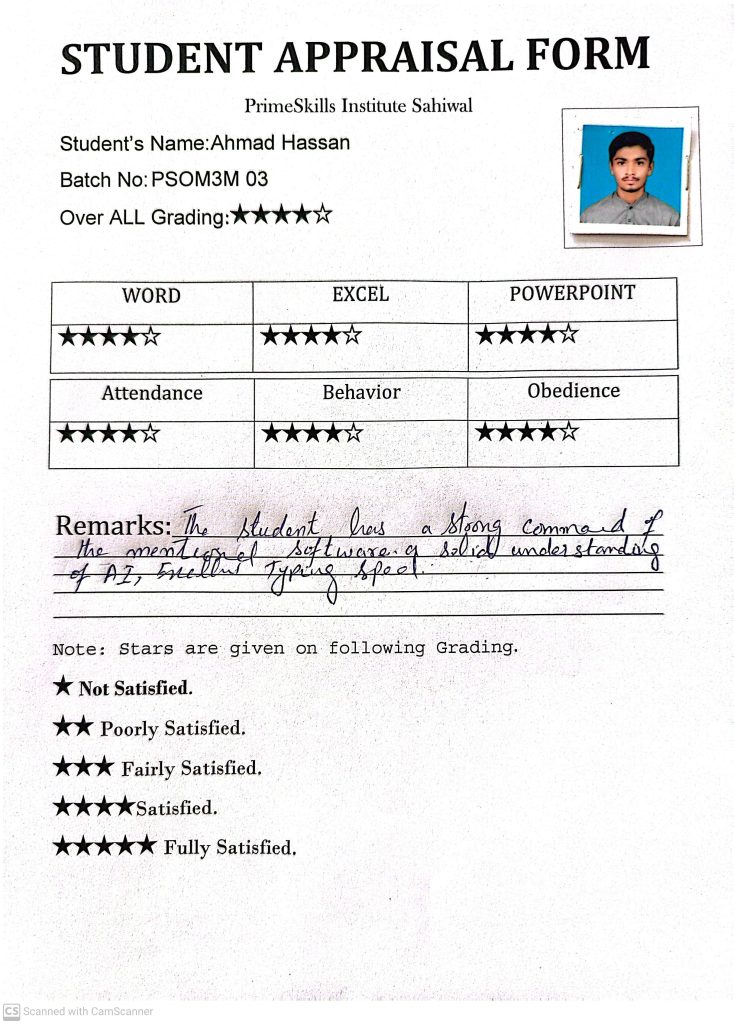 STUDENT APPRAISAL FORM
PrimeSkills Institute Sahiwal
Student's Name:Ahmad Hassan
Batch No: PSOM3M 03
Over ALL Grading:★★★★☆
WORD EXCEL POWERPOINT
★★★★☆ ★★★★☆ ★★★★☆
Attendance Behavior Obedience
★★★★☆ ★★★★☆ ★★★★☆
Remarks: The student has a strong command of
the mentioned software. a solid understanding
of AI, Excellent Typing Speed.
Note: Stars are given on following Grading.
★ Not Satisfied.
★★ Poorly Satisfied.
★★★ Fairly Satisfied.
★★★★Satisfied.
★★★★★ Fully Satisfied.
CS Scanned with CamScanner